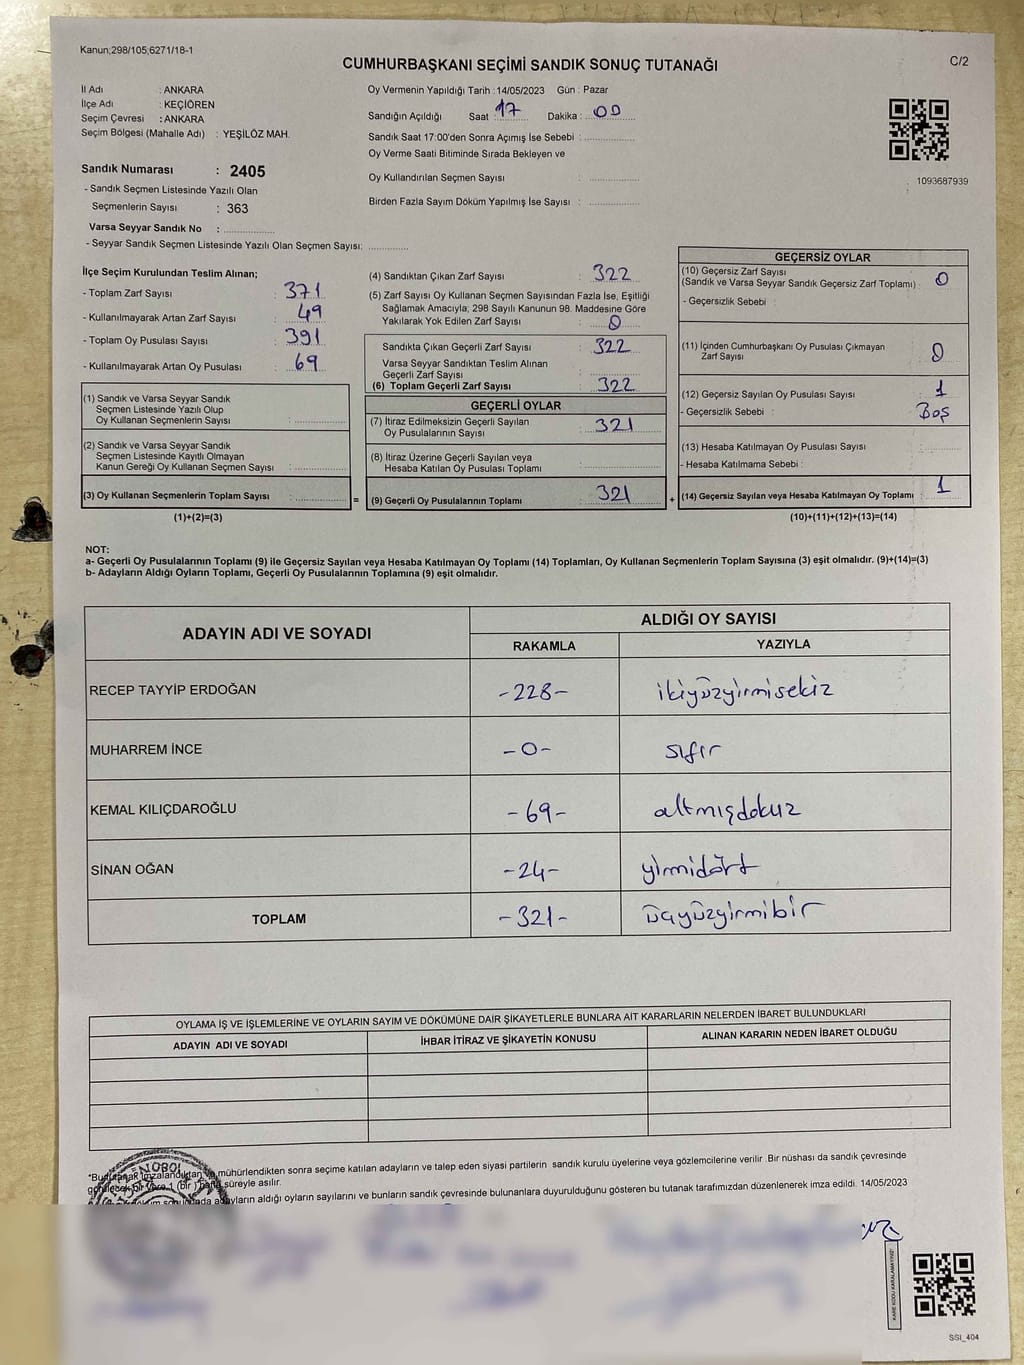 Kanun;298/105;6271/18-1
CUMHURBAŞKANI SEÇİMİ SANDIK SONUÇ TUTANAĞI
C/2
İl Adı : ANKARA
İlçe Adı : KEÇİÖREN
Seçim Çevresi : ANKARA
Seçim Bölgesi (Mahalle Adı) : YEŞİLÖZ MAH.
Sandık Numarası : 2405
- Sandık Seçmen Listesinde Yazılı Olan
Seçmenlerin Sayısı : 363
Varsa Seyyar Sandık No :
- Seyyar Sandık Seçmen Listesinde Yazılı Olan Seçmen Sayısı:
Oy Vermenin Yapıldığı Tarih : 14/05/2023 Gün : Pazar
Sandığın Açıldığı Saat : 17 Dakika : 00
Sandık Saat 17:00'den Sonra Açımış İse Sebebi :
Oy Verme Saati Bitiminde Sırada Bekleyen ve
Oy Kullandırılan Seçmen Sayısı :
Birden Fazla Sayım Döküm Yapılmış İse Sayısı :
1093687939
İlçe Seçim Kurulundan Teslim Alınan;
- Toplam Zarf Sayısı : 371
- Kullanılmayarak Artan Zarf Sayısı : 49
- Toplam Oy Pusulası Sayısı : 391
- Kullanılmayarak Artan Oy Pusulası : 69
(1) Sandık ve Varsa Seyyar Sandık
Seçmen Listesinde Yazılı Olup
Oy Kullanan Seçmenlerin Sayısı :
(2) Sandık ve Varsa Seyyar Sandık
Seçmen Listesinde Kayıtlı Olmayan
Kanun Gereği Oy Kullanan Seçmen Sayısı :
(3) Oy Kullanan Seçmenlerin Toplam Sayısı :
(1)+(2)=(3)
=
(4) Sandıktan Çıkan Zarf Sayısı : 322
(5) Zarf Sayısı Oy Kullanan Seçmen Sayısından Fazla İse, Eşitliği
Sağlamak Amacıyla; 298 Sayılı Kanunun 98. Maddesine Göre
Yakılarak Yok Edilen Zarf Sayısı : 0
Sandıkta Çıkan Geçerli Zarf Sayısı : 322
Varsa Seyyar Sandıktan Teslim Alınan
Geçerli Zarf Sayısı :
(6) Toplam Geçerli Zarf Sayısı : 322
GEÇERLİ OYLAR
(7) İtiraz Edilmeksizin Geçerli Sayılan
Oy Pusulalarının Sayısı : 321
(8) İtiraz Üzerine Geçerli Sayılan veya
Hesaba Katılan Oy Pusulası Toplamı :
(9) Geçerli Oy Pusulalarının Toplamı : 321
+
GEÇERSİZ OYLAR
(10) Geçersiz Zarf Sayısı
(Sandık ve Varsa Seyyar Sandık Geçersiz Zarf Toplamı) : 0
- Geçersizlik Sebebi :
(11) İçinden Cumhurbaşkanı Oy Pusulası Çıkmayan
Zarf Sayısı : 0
(12) Geçersiz Sayılan Oy Pusulası Sayısı : 1
- Geçersizlik Sebebi : Boş
(13) Hesaba Katılmayan Oy Pusulası Sayısı :
- Hesaba Katılmama Sebebi :
(14) Geçersiz Sayılan veya Hesaba Katılmayan Oy Toplamı : 1
(10)+(11)+(12)+(13)=(14)
NOT:
a- Geçerli Oy Pusulalarının Toplamı (9) ile Geçersiz Sayılan veya Hesaba Katılmayan Oy Toplamı (14) Toplamları, Oy Kullanan Seçmenlerin Toplam Sayısına (3) eşit olmalıdır. (9)+(14)=(3)
b- Adayların Aldığı Oyların Toplamı, Geçerli Oy Pusulalarının Toplamına (9) eşit olmalıdır.
ADAYIN ADI VE SOYADI
ALDIĞI OY SAYISI
RAKAMLA YAZIYLA
RECEP TAYYİP ERDOĞAN -228- ikiyüzyirmisekiz
MUHARREM İNCE -0- sıfır
KEMAL KILIÇDAROĞLU -69- altmışdokuz
SİNAN OĞAN -24- yirmidört
TOPLAM -321- üçyüzyirmibir
OYLAMA İŞ VE İŞLEMLERİNE VE OYLARIN SAYIM VE DÖKÜMÜNE DAİR ŞİKAYETLERLE BUNLARA AİT KARARLARIN NELERDEN İBARET BULUNDUKLARI
ADAYIN ADI VE SOYADI İHBAR İTİRAZ VE ŞİKAYETİN KONUSU ALINAN KARARIN NEDEN İBARET OLDUĞU
mühürlendikten sonra seçime katılan adayların ve talep eden siyasi partilerin sandık kurulu üyelerine veya gözlemcilerine verilir. Bir nüshası da sandık çevresinde
süreyle asılır.
adayların aldığı oyların sayılarını ve bunların sandık çevresinde bulunanlara duyurulduğunu gösteren bu tutanak tarafımızdan düzenlenerek imza edildi. 14/05/2023
KARE KODU KARALAMAYINIZ!
SSI_404